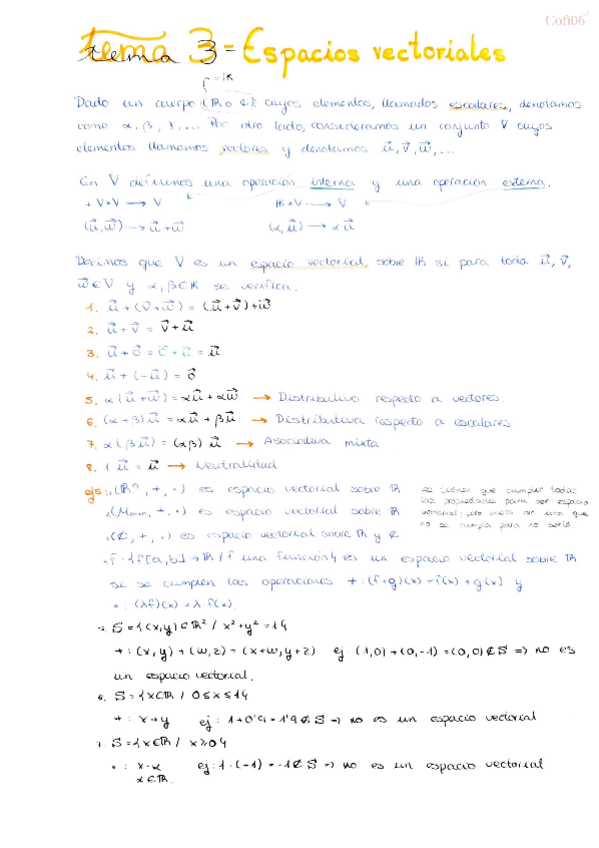 Cofi06
tema 3 = Espacios vectoriales
= IK
Dado un cuerpo (ℝ o ℂ), cuyos elementos, llamados escalares, denotamos
como α, β, γ, ... Por otro lado, consideramos un conjunto V cuyos
elementos llamamos vectores y denotamos u⃗, v⃗, w⃗, ...
En V definimos una operación interna y una operación externa.
+ V×V → V IK×V → V
(u⃗, w⃗) → u⃗+w⃗ (α, u⃗) → αu⃗
Decimos que V es un espacio vectorial sobre IK si para toda u⃗, v⃗,
w⃗ ∈ V y α, β ∈ IK se verifica.
1. u⃗ + (v⃗+w⃗) = (u⃗+v⃗)+w⃗
2. u⃗ + v⃗ = v⃗ + u⃗
3. u⃗ + 0⃗ = 0⃗ + u⃗ = u⃗
4. u⃗ + (-u⃗) = 0⃗
5. α(u⃗+w⃗) = αu⃗ + αw⃗ → Distributiva respecto a vectores.
6. (α+β)u⃗ = αu⃗ + βu⃗ → Distributiva respecto a escalares
7. α(βu⃗) = (αβ)u⃗ → Asociativa mixta
8. 1u⃗ = u⃗ → Neutralidad
ejs: 1. (ℝⁿ, +, ·) es espacio vectorial sobre ℝ
2. (Mmxn, +, ·) es espacio vectorial sobre ℝ
3. (ℂ, +, ·) es espacio vectorial sobre ℝ y ℂ
se tienen que cumplir todas
las propiedades para ser espacio
vectorial; pero basta con una que
no se cumpla para no serlo.
4. F = {f[a,b] → ℝ / f una función} es un espacio vectorial sobre ℝ
si se cumplen las operaciones + : (f+g)(x) = f(x) + g(x) y
· : (λf)(x) = λ·f(x).
5. S = {(x,y) ∈ ℝ² / x²+y² = 1}
+ : (x,y) + (w,z) = (x+w, y+z) ej: (1,0) + (0,-1) = (0,0) ∉ S => no es
un espacio vectorial.
6. S = {x ∈ ℝ / 0 ≤ x ≤ 1}
+ : x+y ej: 1+0'9 = 1'9 ∉ S → no es un espacio vectorial
7. S = {x ∈ ℝ / x ≥ 0}
· : x·α ej: 1·(-1) = -1 ∉ S → no es un espacio vectorial
α ∈ ℝ.